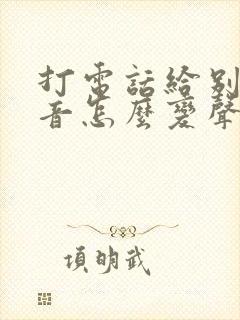 打電話給別
音怎麼變聲
項明武